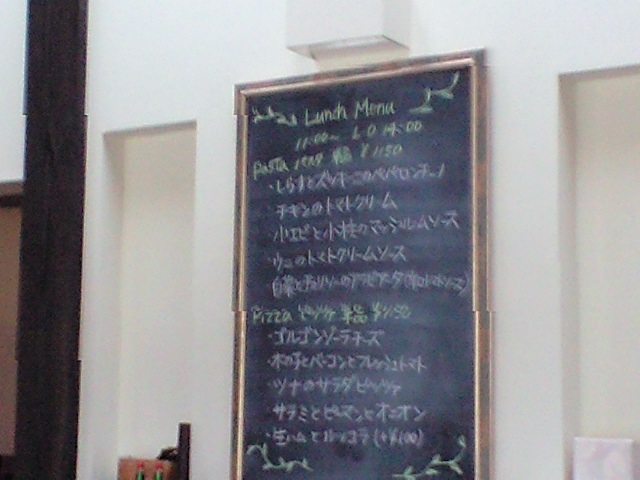 Lunch Menu
11:00~ L.O 14:00
Pasta パスタ 単品 ¥1150
・しらすとズッキーニのペペロンチーノ
・チキンのトマトクリーム
・小エビと小柱のマッシュルームソース
・ウニのトマトクリームソース
・白菜とチョリソーのアラビアータ(辛口トマトソース)
Pizza ピッツァ 単品 ¥1150
・ゴルゴンゾーラチーズ
・木の子とベーコンとフレッシュトマト
・ツナのサラダピッツァ
・サラミとピーマンとオニオン
・生ハムとルッコラ(+¥100)